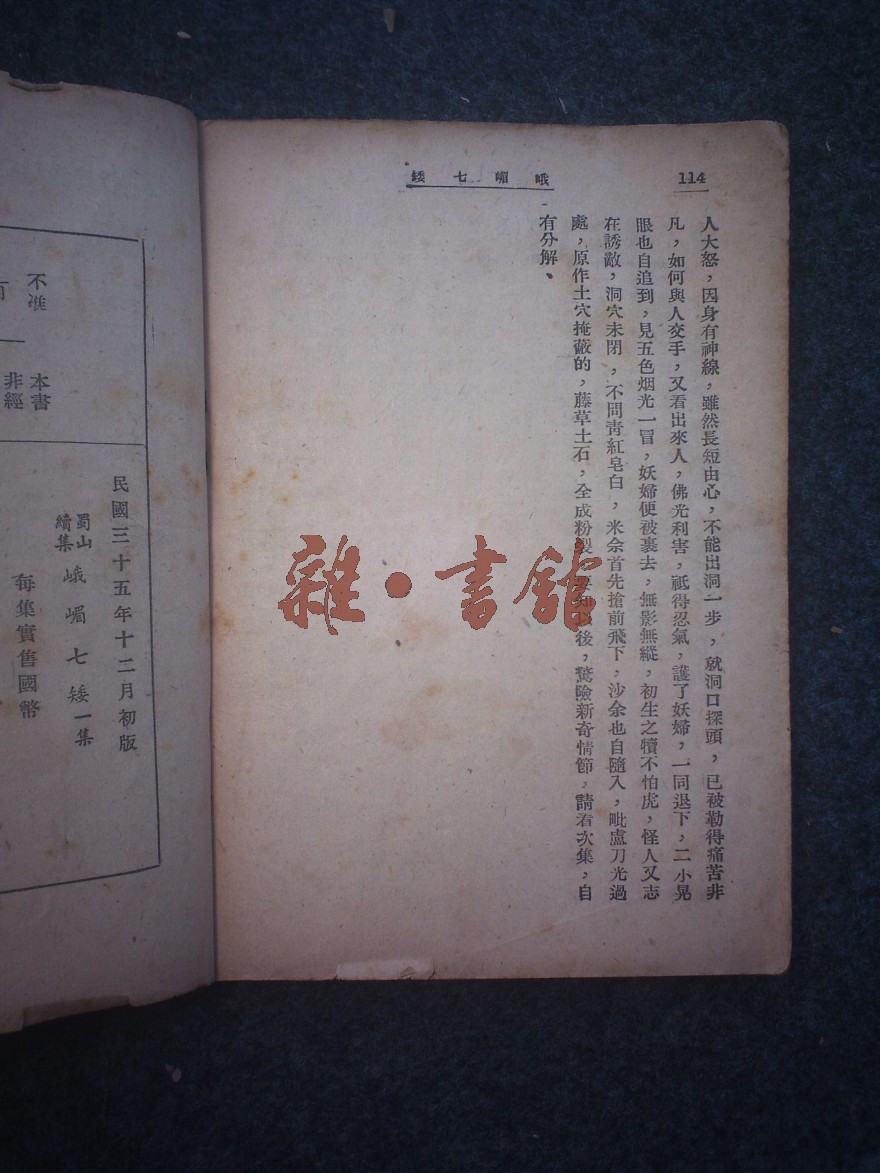 114
峨嵋七矮
人大怒，因身有神線，雖然長短由心，不能出洞一步，就洞口探頭，已被勒得痛苦非
凡，如何與人交手，又看出來人，佛光利害，祇得忍氣，護了妖婦，一同退下，二小晃
眼也自追到，見五色烟光一冒，妖婦便被裹去，無影無縱，初生之犢不怕虎，怪人又志
在誘敵，洞穴未閉，不問青紅皂白，米余首先搶前飛下，沙余也自隨入，毗盧刀光過
處，原作土穴掩蔽的，藤草土石，全成粉裂，要知以後，驚險新奇情節，請看次集，自
有分解、
雜·書館
不準
本書
非經
民國三十五年十二月初版
蜀山續集 峨嵋七矮一集
每集實售國幣